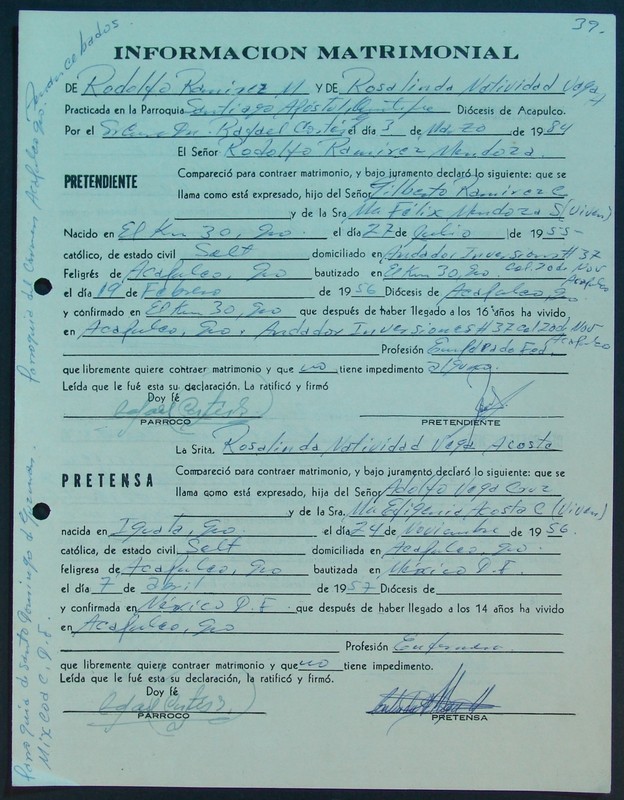 39.
INFORMACION MATRIMONIAL
DE Rodolfo Ramirez M Y DE Rosalinda Natividad Vega A
Practicada en la Parroquia Santiago Apostol Diócesis de Acapulco.
Por el Sr. Rafael Cortés el día 3 de Marzo de 1984
El Señor Rodolfo Ramirez Mendoza.
PRETENDIENTE
Compareció para contraer matrimonio, y bajo juramento declaró lo siguiente: que se
llama como está expresado, hijo del Señor Gilberto Ramirez C
y de la Sra. Ma Félix Mendoza S (Viven)
Nacido en El Km 30, Gro. el día 27 de Julio de 1955
católico, de estado civil Solt domiciliado en Andador Inversiones #37
Feligrés de Acapulco, Gro bautizado en El Km 30, Gro. Calzada Nov
el día 19 de Febrero de 1956 Diócesis de Acapulco, Gro Acapulco
y confirmado en El Km 30, Gro que después de haber llegado a los 16 años ha vivido
en Acapulco, Gro. Andador Inversiones #37 Calzada Nov
Acapulco
Profesión Empleado Fed.
que libremente quiere contraer matrimonio y que no tiene impedimento alguno.
Leída que le fué esta su declaración. La ratificó y firmó
Doy fé
Rafael Cortés
PARROCO PRETENDIENTE
La Srita. Rosalinda Natividad Vega Acosta
PRETENSA
Compareció para contraer matrimonio, y bajo juramento declaró lo siguiente: que se
llama como está expresado, hija del Señor Adolfo Vega Cruz
y de la Sra. Ma Efigenia Acosta C (Viven)
nacida en Iguala, Gro el día 24 de Noviembre de 1956.
católica, de estado civil Solt domiciliada en Acapulco, Gro.
feligresa de Acapulco, Gro bautizada en México D.F.
el día 7 de abril de 1957 Diócesis de
y confirmada en México D.F. que después de haber llegado a los 14 años ha vivido
en Acapulco, Gro
Profesión Enfermera
que libremente quiere contraer matrimonio y que no tiene impedimento.
Leída que le fué esta su declaración, la ratificó y firmó.
Doy fé
Rafael Cortés
PARROCO PRETENSA
Parroquia del Carmen Acapulco Gro.
Parroquia de Santo Domingo de Guzman.
Mixcoac. D.F.